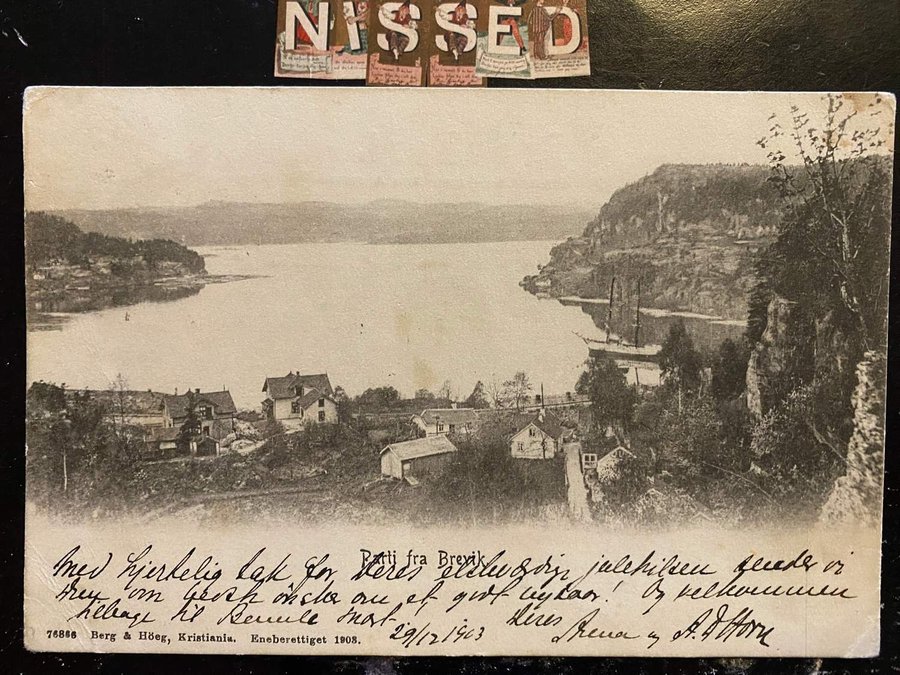 NISSED
Parti fra Brevik.
Med hjertelig tak for Deres elskværdige julehilsen sender vi
Dem vore bedste ønsker om et godt nytaar! Og velkommen
tilbage til Bamble snart. Deres
29/12 1903 Anna og A. D. Horn
76866 Berg & Höeg, Kristiania. Eneberettiget 1903.